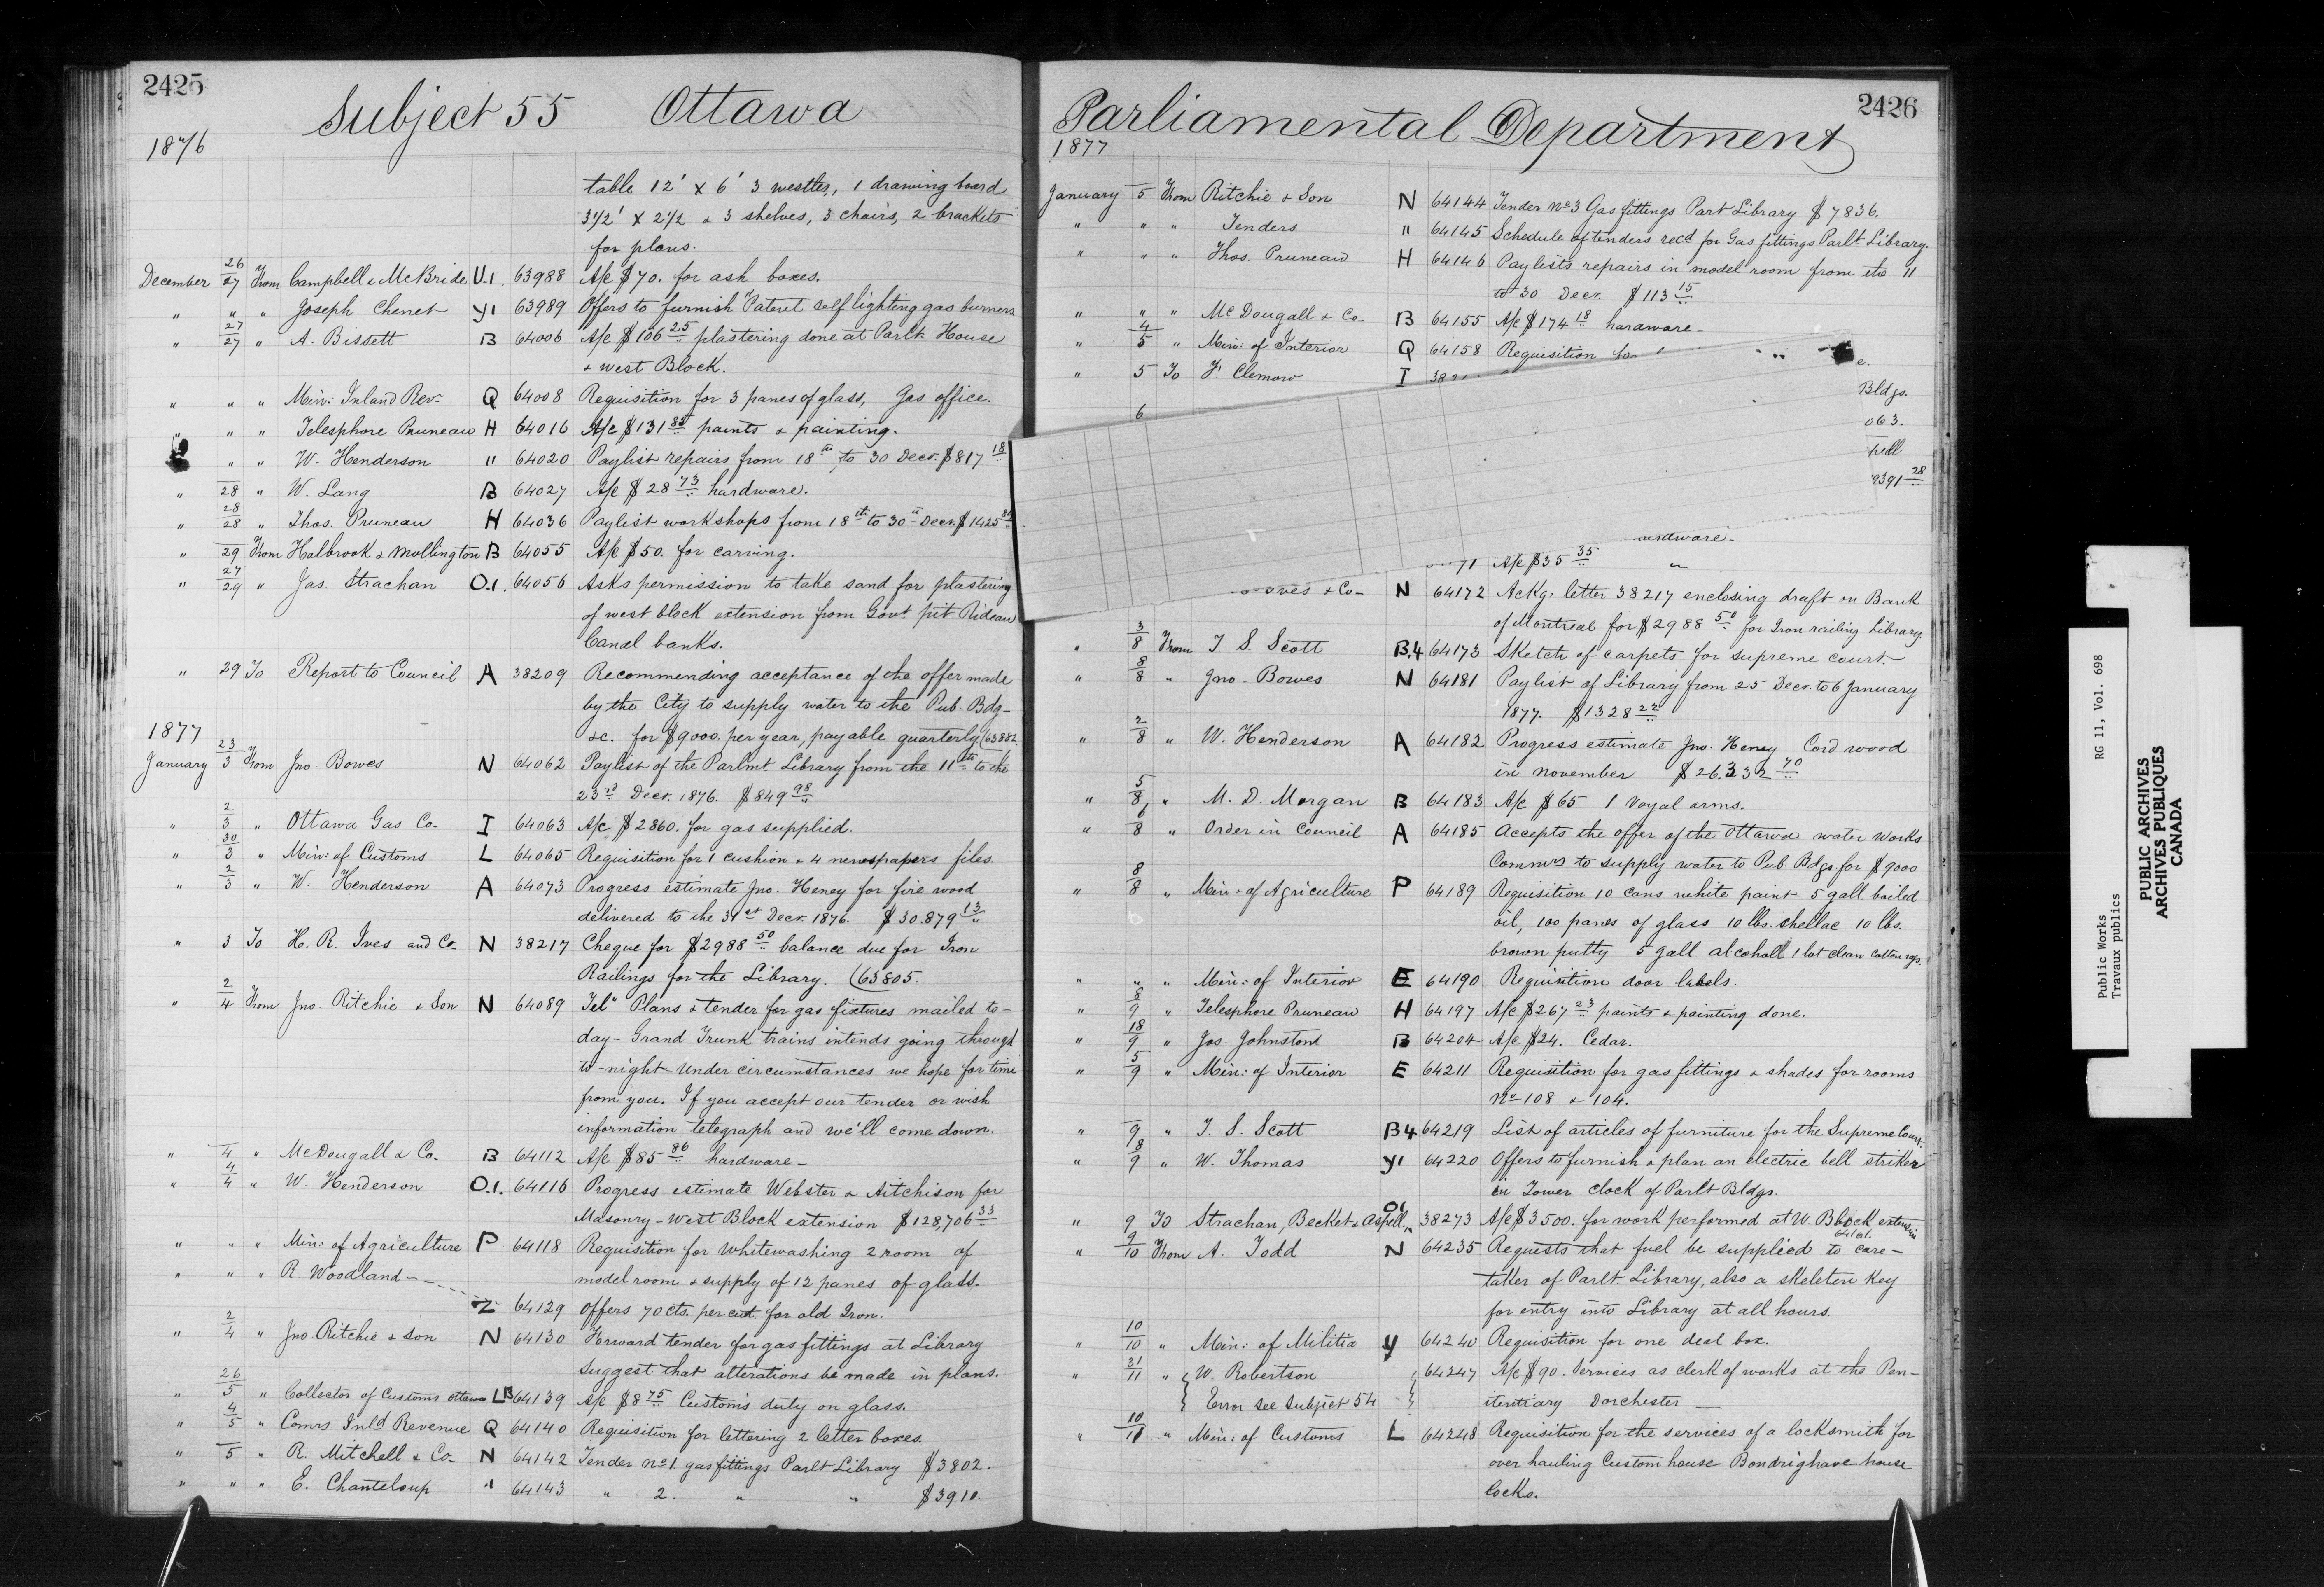 2425
Subject 55 Ottawa
1876
table 12' x 6' 3 westles, 1 drawing board
3 1/2' x 2 1/2 & 3 shelves, 3 chairs, 2 brackets
for plans.
December 26/27 From Campbell & McBride U.1. 63988 A/c $70. for ash boxes.
" " " Joseph Chenet Y1 63989 Offers to furnish Patent self lighting gas burners
" 27/27 " A. Bissett B 64006 A/c $106 25 plastering done at Parlt. House
& West Block.
" " " Min: Inland Rev- Q 64008 Requisition for 3 panes of glass, Gas office.
" " " Telesphore Pruneau H 64016 A/c $131 80 paints & painting.
" " W. Henderson " 64020 Paylist repairs from 18th to 30 Decr. $817 18
" 28 " W. Lang B 64027 A/c $28 73 hardware.
" 28/28 " Thos. Pruneau H 64036 Paylist workshops from 18th to 30th Decr. $1425
" 29 From Halbrook & Mollington B 64055 A/c $50. for carving.
" 27/29 " Jas. Strachan O.1. 64056 Asks permission to take sand for plastering
of west block extension from Govt. pit Rideau
Canal banks.
" 29 To Report to Council A 38209 Recommending acceptance of the offer made
by the City to supply water to the Pub. Bdg-
&c. for $9000. per year, payable quarterly (63882
1877
January 23/3 From Jno. Bowes N 64062 Paylist of the Parlmt Library from the 11th to the
23rd Decr. 1876. $849 98
" 2/3 " Ottawa Gas Co- I 64063 A/c $2860. for gas supplied.
" 30/3 " Min: of Customs L 64065 Requisition for 1 cushion & 4 newspapers files.
" 2/3 " W. Henderson A 64073 Progress estimate Jno. Heney for fire wood
delivered to the 31st Decr. 1876. $30.879 13
" 3 To H. R. Ives and Co- N 38217 Cheque for $2988 50 balance due for Iron
Railings for the Library. (63805.
" 2/4 From Jno. Ritchie & Son N 64089 Tel" Plans & tender for gas fixtures mailed to-
day- Grand Trunk trains intends going through
to-night- Under circumstances we hope for time
from you. If you accept our tender or wish
information telegraph and we'll come down.
" 4 " McDougall & Co. B 64112 A/c $85 86 hardware-
" 4/4 " W. Henderson O.1. 64116 Progress estimate Webster & Aitchison for
Masonry- West Block extension $128,706 33
" " " Min: of Agriculture P 64118 Requisition for Whitewashing 2 room of
" " " R. Woodland- model room & supply of 12 panes of glass.
Z 64129 Offers 70 cts. per cwt. for old Iron.
" 2/4 " Jno. Ritchie & Son N 64130 Forward tender for gas fittings at Library
suggest that alterations be made in plans.
" 26/5 " Collector of Customs Ottawa LB 64139 A/c $8 75 Customs duty on glass.
" 4/5 " Comrs Inld Revenue Q 64140 Requisition for lettering 2 letter boxes.
" 5 " R. Mitchell & Co- N 64142 Tender No 1. gasfittings Parlt Library $3802.
" " " E. Chanteloup " 64143 " 2. " " $3910.
2426
Parliamental Department
1877
January 5 From Ritchie & Son N 64144 Tender No 3 Gas fittings Parlt Library $7836.
" " " Tenders " 64145 Schedule of tenders recd for Gas fittings Parlt Library.
" " " Thos. Pruneau H 64146 Paylists repairs in model room from the 11
to 30 Decr. $113 15
" " " McDougall & Co- B 64155 A/c $174 18 hardware-
" 4/5 " Min: of Interior Q 64158 Requisition for
" 5 To F. Clemow I 38
e.
Bldgs.
6
063.
pell
9391 28
hardware-
71 A/c $35 35 "
Ives & Co- N 64172 Ackg. letter 38217 enclosing draft on Bank
of Montreal for $2988 50 for Iron railing Library.
" 3/8 From T. S. Scott B.4 64173 Sketch of carpets for supreme court.
" 8/8 " Jno. Bowes N 64181 Paylist of Library from 25 Decr. to 6 January
1877. $1328 22
" 2/8 " W. Henderson A 64182 Progress estimate Jno. Heney Cord wood
in November $26.332 70
" 5/8 " M. D. Morgan B 64183 A/c $65 1 Voyal arms.
" 6/8 " Order in Council A 64185 Accepts the offer of the Ottawa water works
Commrs to supply water to Pub. Bdgs. for $9000
" 8/8 " Min: of Agriculture P 64189 Requisition 10 cans white paint 5 gall. boiled
oil, 100 panes of glass 10 lbs. shellac 10 lbs.
brown putty 5 gall alcoholl 1 lot clean cotton rags.
" " " Min: of Interior E 64190 Requisition door labels.
" 8/9 " Telesphore Pruneau H 64197 A/c $267 23 paints & painting done.
" 18/9 " Jos. Johnston B 64204 A/c $24. Cedar.
" 5/9 " Min: of Interior E 64211 Requisition for gasfittings & shades for rooms
No 108 & 104.
" 9 " T. S. Scott B4 64219 List of articles of furniture for the Supreme Court-
" 8/9 " W. Thomas Y1 64220 Offers to furnish & plan an electric bell striker
in Tower clock of Parlt Bldgs.
" 9 To Strachan, Becket & Aspell O1 38273 A/c $3500. for work performed at W. Block extension
" 9/10 From A. Todd N 64235 Requests that fuel be supplied to care-
taker of Parlt. Library, also a skeleton key
for entry into Library at all hours.
" 10/10 " Min: of Militia Y 64240 Requisition for one deal box.
" 31/11 " { W. Robertson } 64247 A/c $90. Services as clerk of works at the Pen-
{ Error see Subject 54 } itentiary Dorchester-
" 10/11 " Min: of Customs L 64248 Requisition for the services of a locksmith for
over hauling Custom house house
locks.
Public Works RG 11, Vol. 698
Travaux publics
PUBLIC ARCHIVES
ARCHIVES PUBLIQUES
CANADA